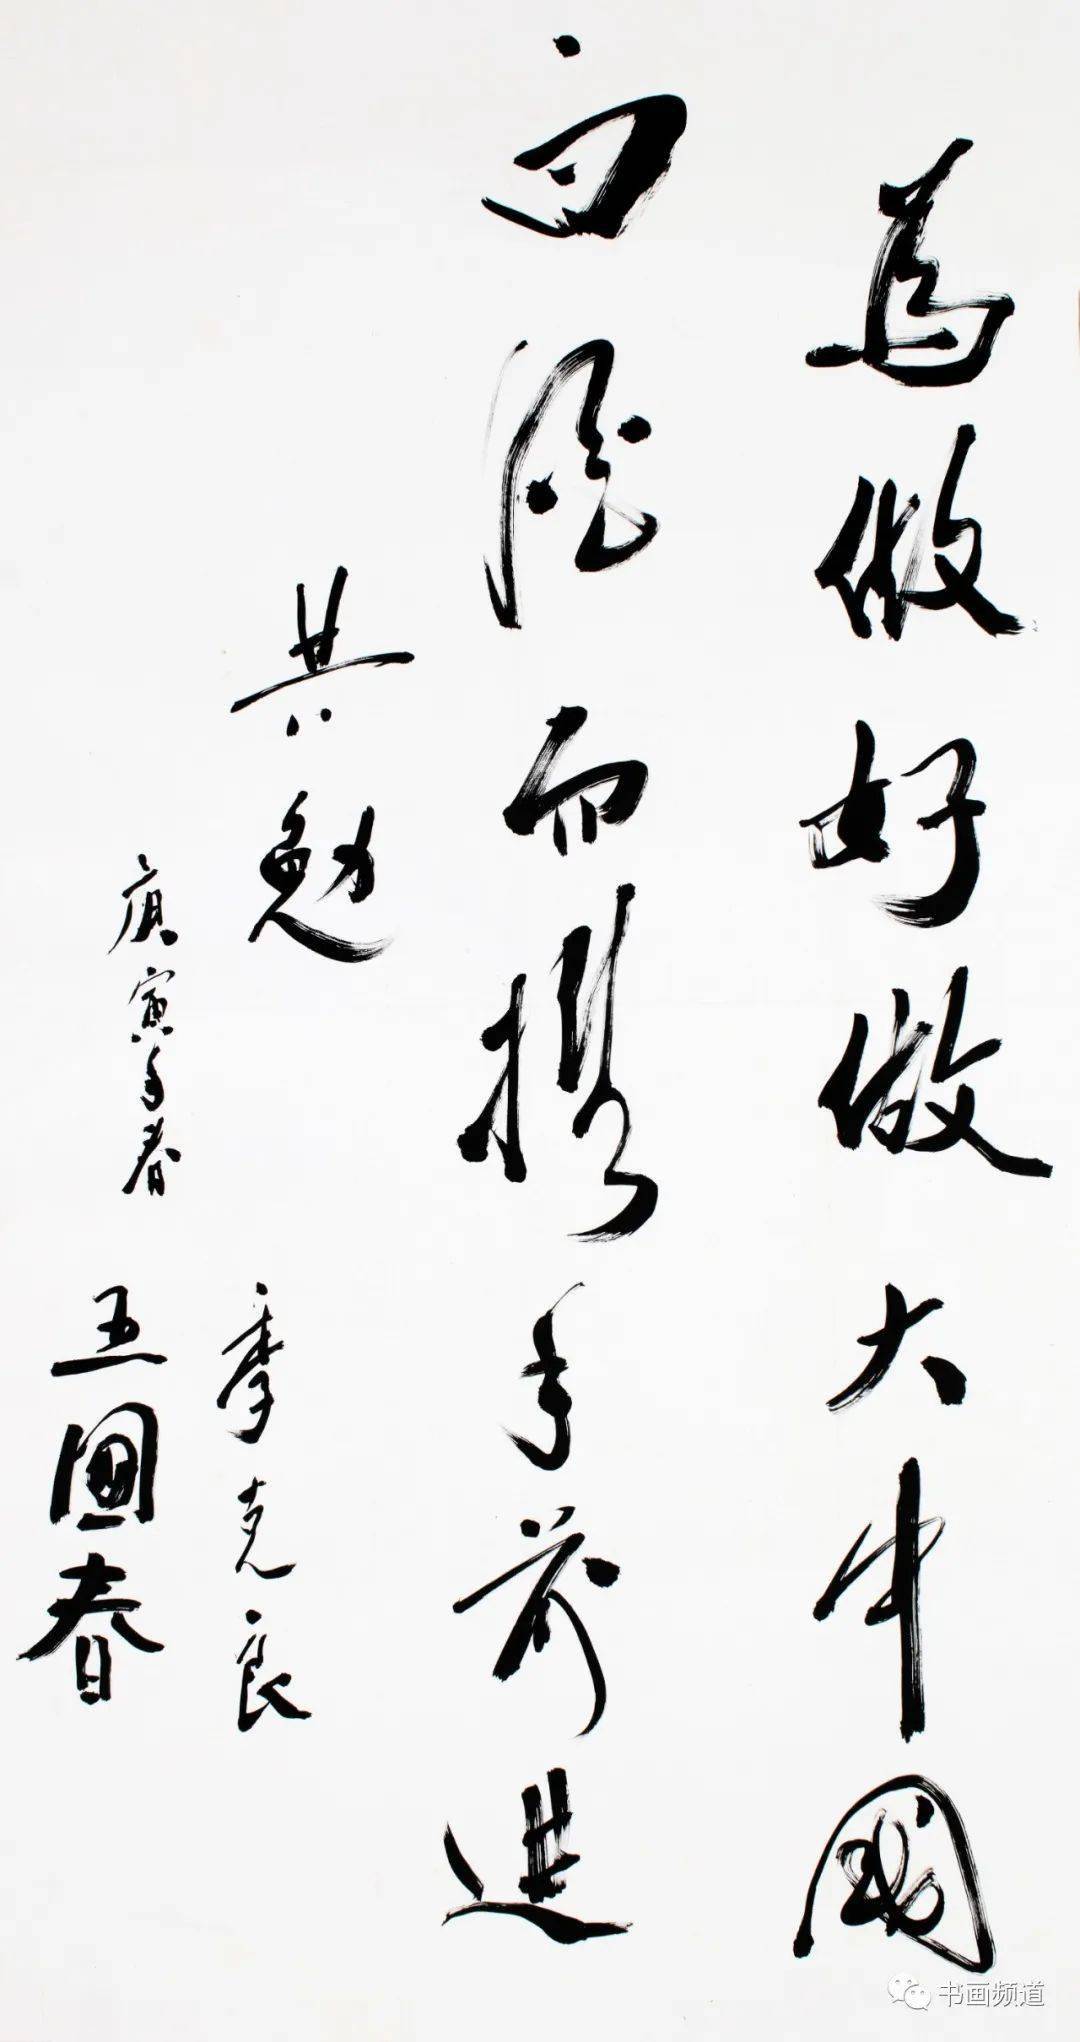 为做好做大中國
白酒而携手前进
共勉
庚寅年春
季克良
王國春
书画频道